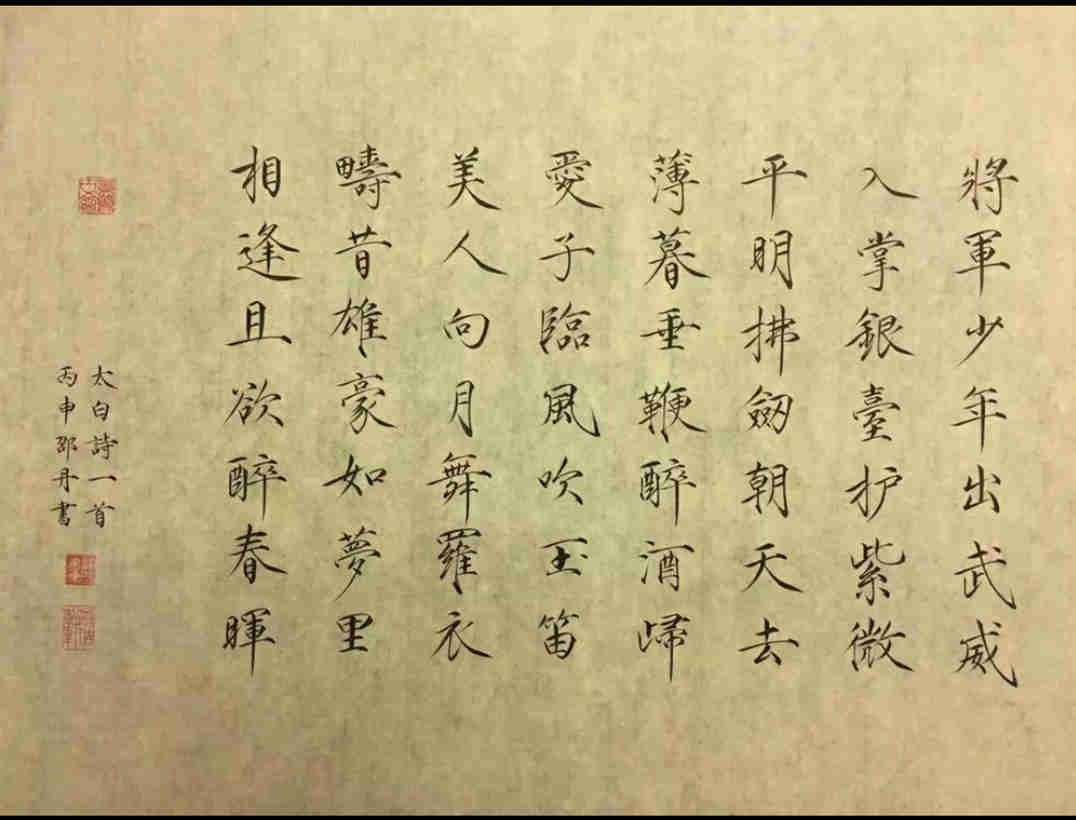 將軍少年出武威
入掌銀臺护紫微
平明拂劒朝天去
薄暮垂鞭醉酒歸
愛子臨風吹玉笛
美人向月舞羅衣
疇昔雄豪如夢里
相逢且欲醉春暉
太白詩一首
丙申邵丹書